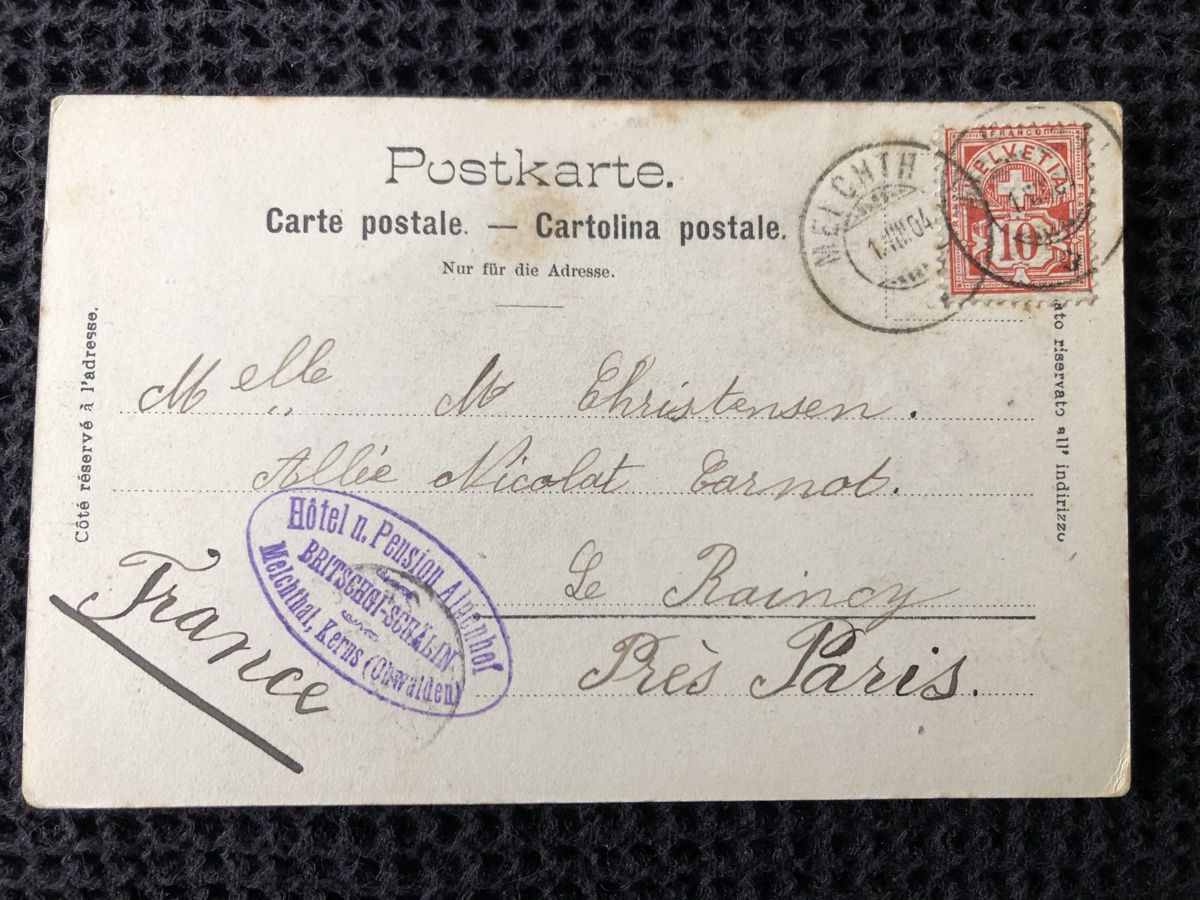 Postkarte.
Carte postale. — Cartolina postale.
Nur für die Adresse.
Côté réservé à l'adresse.
ato riservato all' indirizzo
FRANCO
HELVETIA
10
MELCHTH
1.VIII.04.
Melle M Christensen.
Allée Nicolat Carnot.
Le Raincy
Près Paris.
France
Hôtel u. Pension Alpenhof
BRITSCHGI-SCHÄLIN
Melchthal, Kerns (Obwalden)